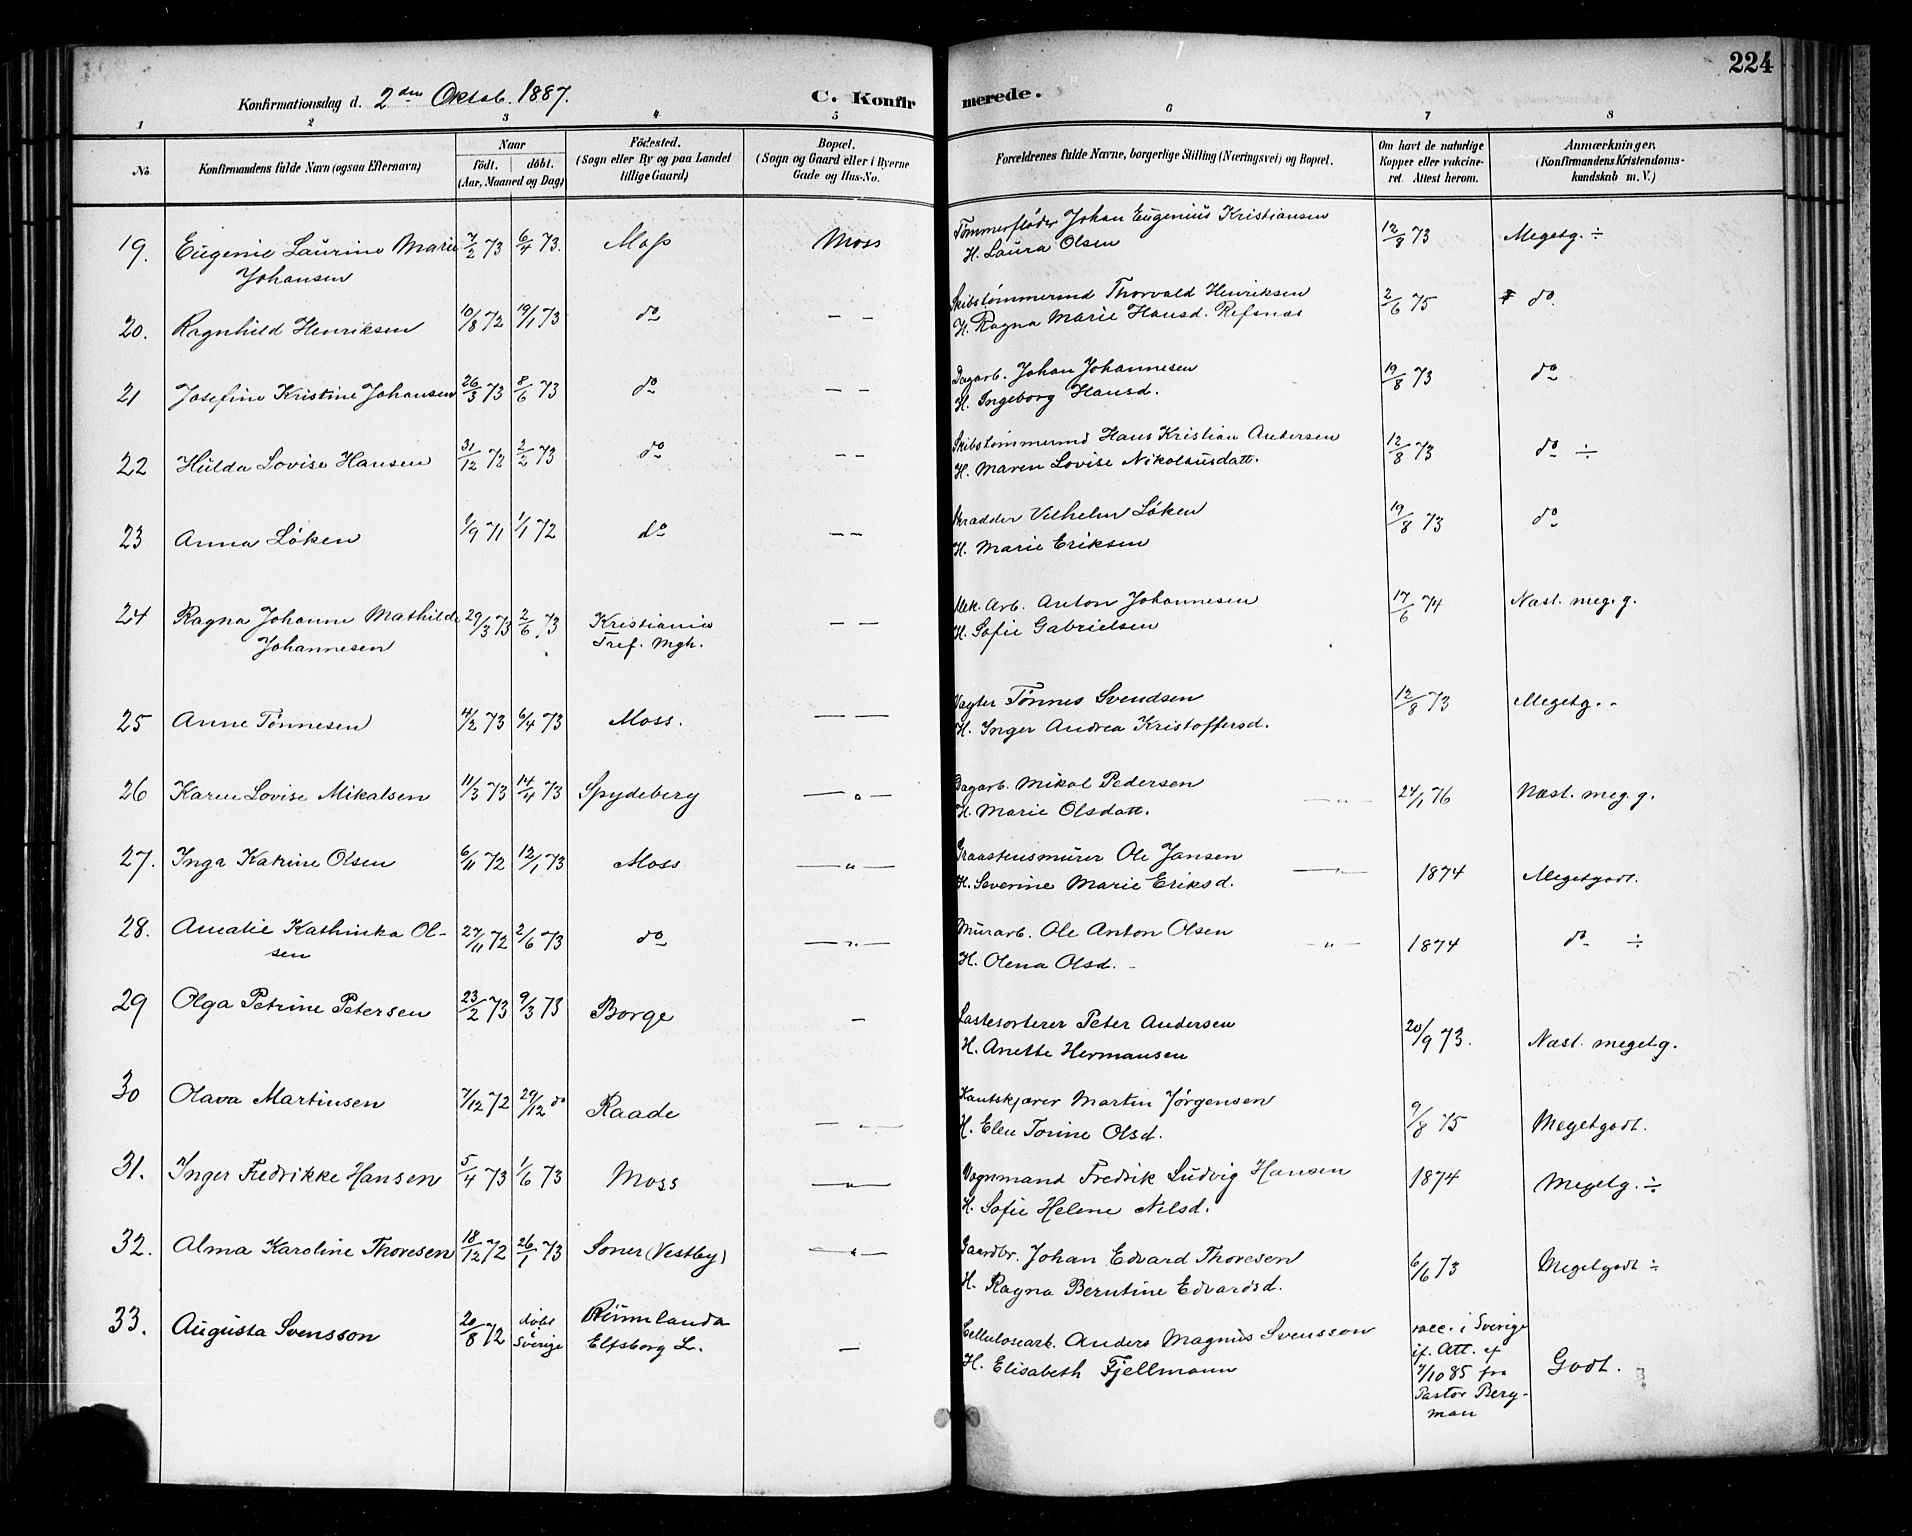 224
Konfirmationsdag d. 2den Oktob. 1887. C. Konfirmerede.
1 2 3 4 5 6 7 8
No. Konfirmandens fulde Navn (ogsaa Efternavn) Naar födt. döbt. (Aar, Maaned og Dag) Födested. (Sogn eller By og paa Landet tillige Gaard) Bopæl. (Sogn og Gaard eller i Byerne Gade og Hus-No. Forældrenes fulde Navne, borgerlige Stilling (Næringsvei) og Bopæl. Om havt de naturlige Kopper eller vakcineret. Attest herom. Anmærkninger. (Konfirmandens Kristendomskundskab m. V.)
19. Eugenie Laurine Marie 7/2 73 6/4 73. Moss Moss Tømmerfløder Johan Eugenius Kristiansen 12/8 73 Megetg. ÷
Johansen H. Laura Olsen
20. Ragnhild Henriksen 10/8 72 19/1 73 do — — Skibstømmermd Thorvald Henriksen 2/6 75 do
H. Ragna Marie Hansd. Refsnes
21 Josefine Kristine Johansen 26/3 73 8/6 73 do — — Dagarb. Johan Johannesen 19/8 73 do
H. Ingeborg Hansd.
22 Hulda Lovise Hansen 31/12 72 2/2 73 do — — Skibstømmermd Hans Kristian Andersen 12/8 73 do ÷
H. Maren Lovise Nikolausdatt.
23 Anna Löken 9/9 71 1/1 72 do — — Skrædder Vilhelm Löken 19/8 73 do
H. Marie Eriksen
24 Ragna Johanne Mathilde 29/3 73 2/6 73 Kristiania — — Mek. Arb. Anton Johannesen 17/6 74 Næst. meg. g.
Johannesen Tref. Mgh. H. Sofie Gabrielsen
25 Anne Tönnesen 4/2 73 6/4 73 Moss. — — Vagter Tønnes Svendsen 12/8 73 Megetg.
H. Inger Andrea Kristoffersd.
26 Karen Lovise Mikalsen 11/3 73 14/4 73 Spydeberg — " — Dagarb. Mikal Pedersen — " — 24/1 76 Næst. meg. g.
H. Marie Olsdatt.
27. Inga Katrine Olsen 6/11 72 12/1 73 Moss — " — Graastensmürer Ole Jansen — " — 1874 Megetgodt.
H. Severine Marie Eriksd.
28. Amalie Kathinka Ol- 27/11 72 2/6 73 do — " — Murarb. Ole Anton Olsen — " — 1874 do ÷
sen H. Olena Olsd.
29 Olga Petrine Petersen 23/2 73 9/3 73 Borge — Lastesorterer Peter Andersen 20/9 73. Næst. megetg.
H. Anette Hermansen
30 Olava Martinsen 7/12 72 29/12 do Raade — " — Kantskjærer Martin Jørgensen 9/8 75 Megetgodt.
H. Elen Torine Olsd.
31. Inger Fredrikke Hansen 5/4 73 1/6 73 Moss — " — Vognmand Fredrik Ludvig Hansen 1874 Megetg. ÷
H. Sofie Helene Nilsd.
32. Alma Karoline Thoresen 18/12 72 26/1 73 Soner (Vestby) — " — Gaardbr. Johan Edvard Thoresen 6/6 73 Megetgodt ÷
H. Ragna Berntine Edvardsd.
33. Augusta Svensson 20/8 72 døbt Sverige Rünnlanda Elfsborg L. — Cellulosearb. Anders Magnüs Svensson vacc. i Sverige Godt.
H. Elisabeth Fjellmann if. Att. af
7/10 85 fra
Pastor Berg-
man